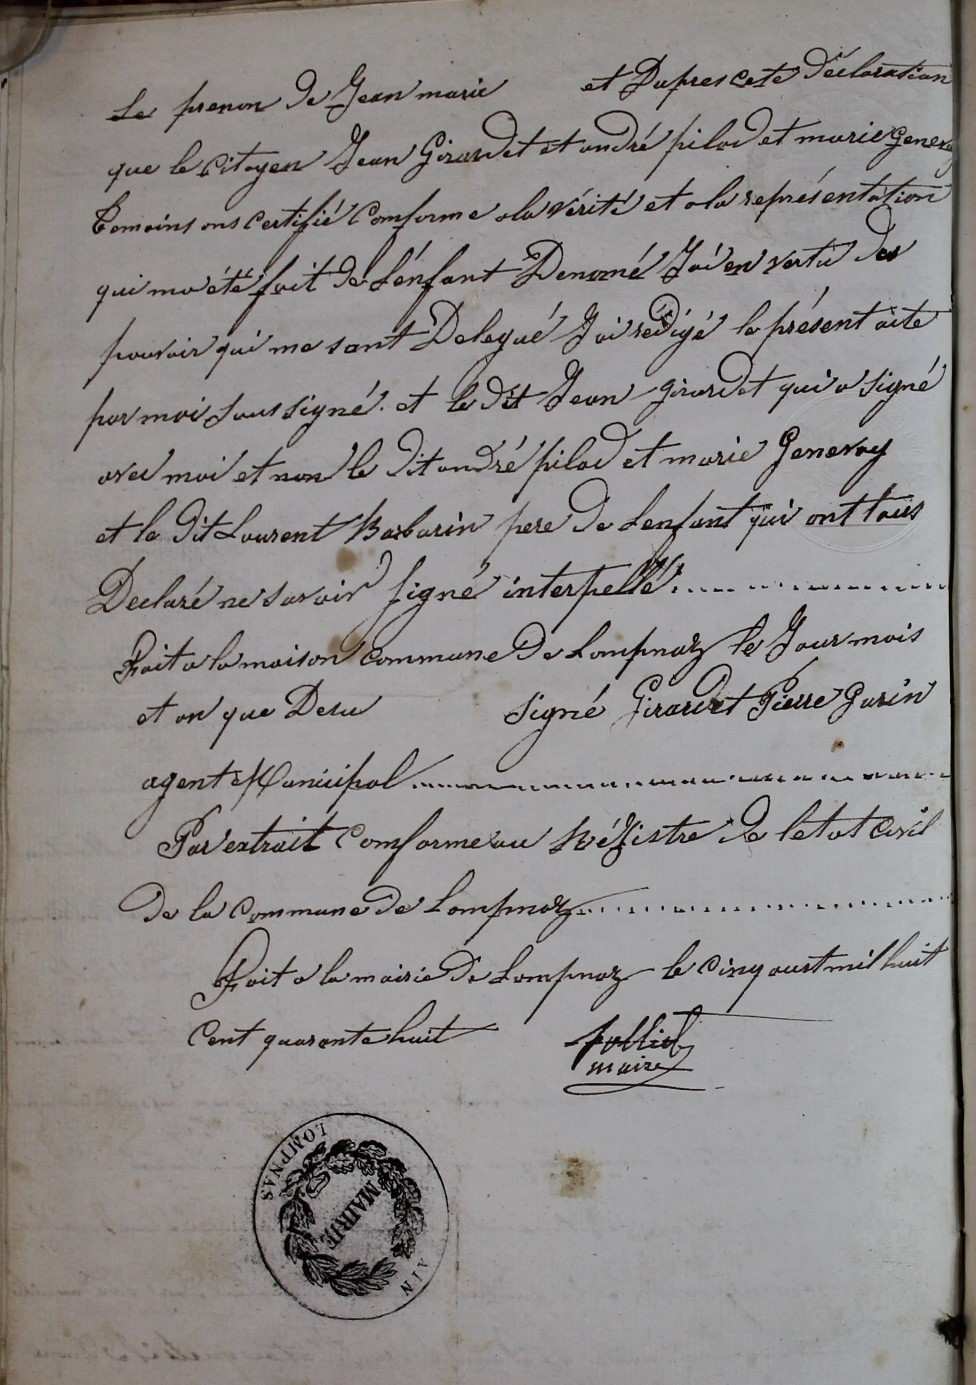 Le prenon de Jean marie et Dapres cete déclaration
que le citoyen Jean Girardet et andré pilod et marie Genevay
temoins ons certifié Comforme a la vérité et a la représentation
qui ma été fait de L'énfant Denomé J'ai en vertu des
pouvoir qui me sont Delegué J'ai redigé le présent acte
par moi Sous signé. et le dit Jean girardet qui a signé
avec moi et non le dit andré pilod et marie Genevay
et le dit Laurent Barbarin pere de Lenfant qui ont tous
Declaré ne savoir signé interpellé
Fait a la maison commune de Lompnaz le Jour mois
et an que Desu signé Girardet Pierre Garin
agent Municipal
Par extrait Comforme au Régistre de letat Civil
de la commune de Lompnaz
Fait a la mairie de Lompnaz le cinq aust mil huit
Cent quarante huit
maire
LOMPNAS
MAIRIE
AIN